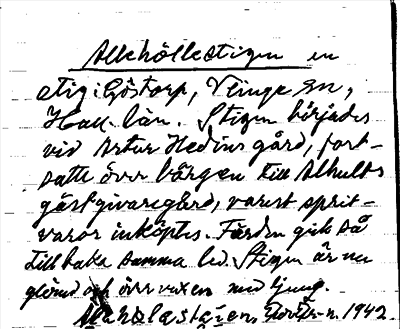 Allehöllestigen en
stig i Göstorp, Veinge sn,
Hall. län. Stigen börjades
vid Artur Hedins gård, fort-
satte över bärgen till Alhults
gästgivaregård, varest sprit-
varor inköptes. Färden gick så
tillbaka samma led. Stigen är nu
glömd och övervuxen med ljung.
1942.